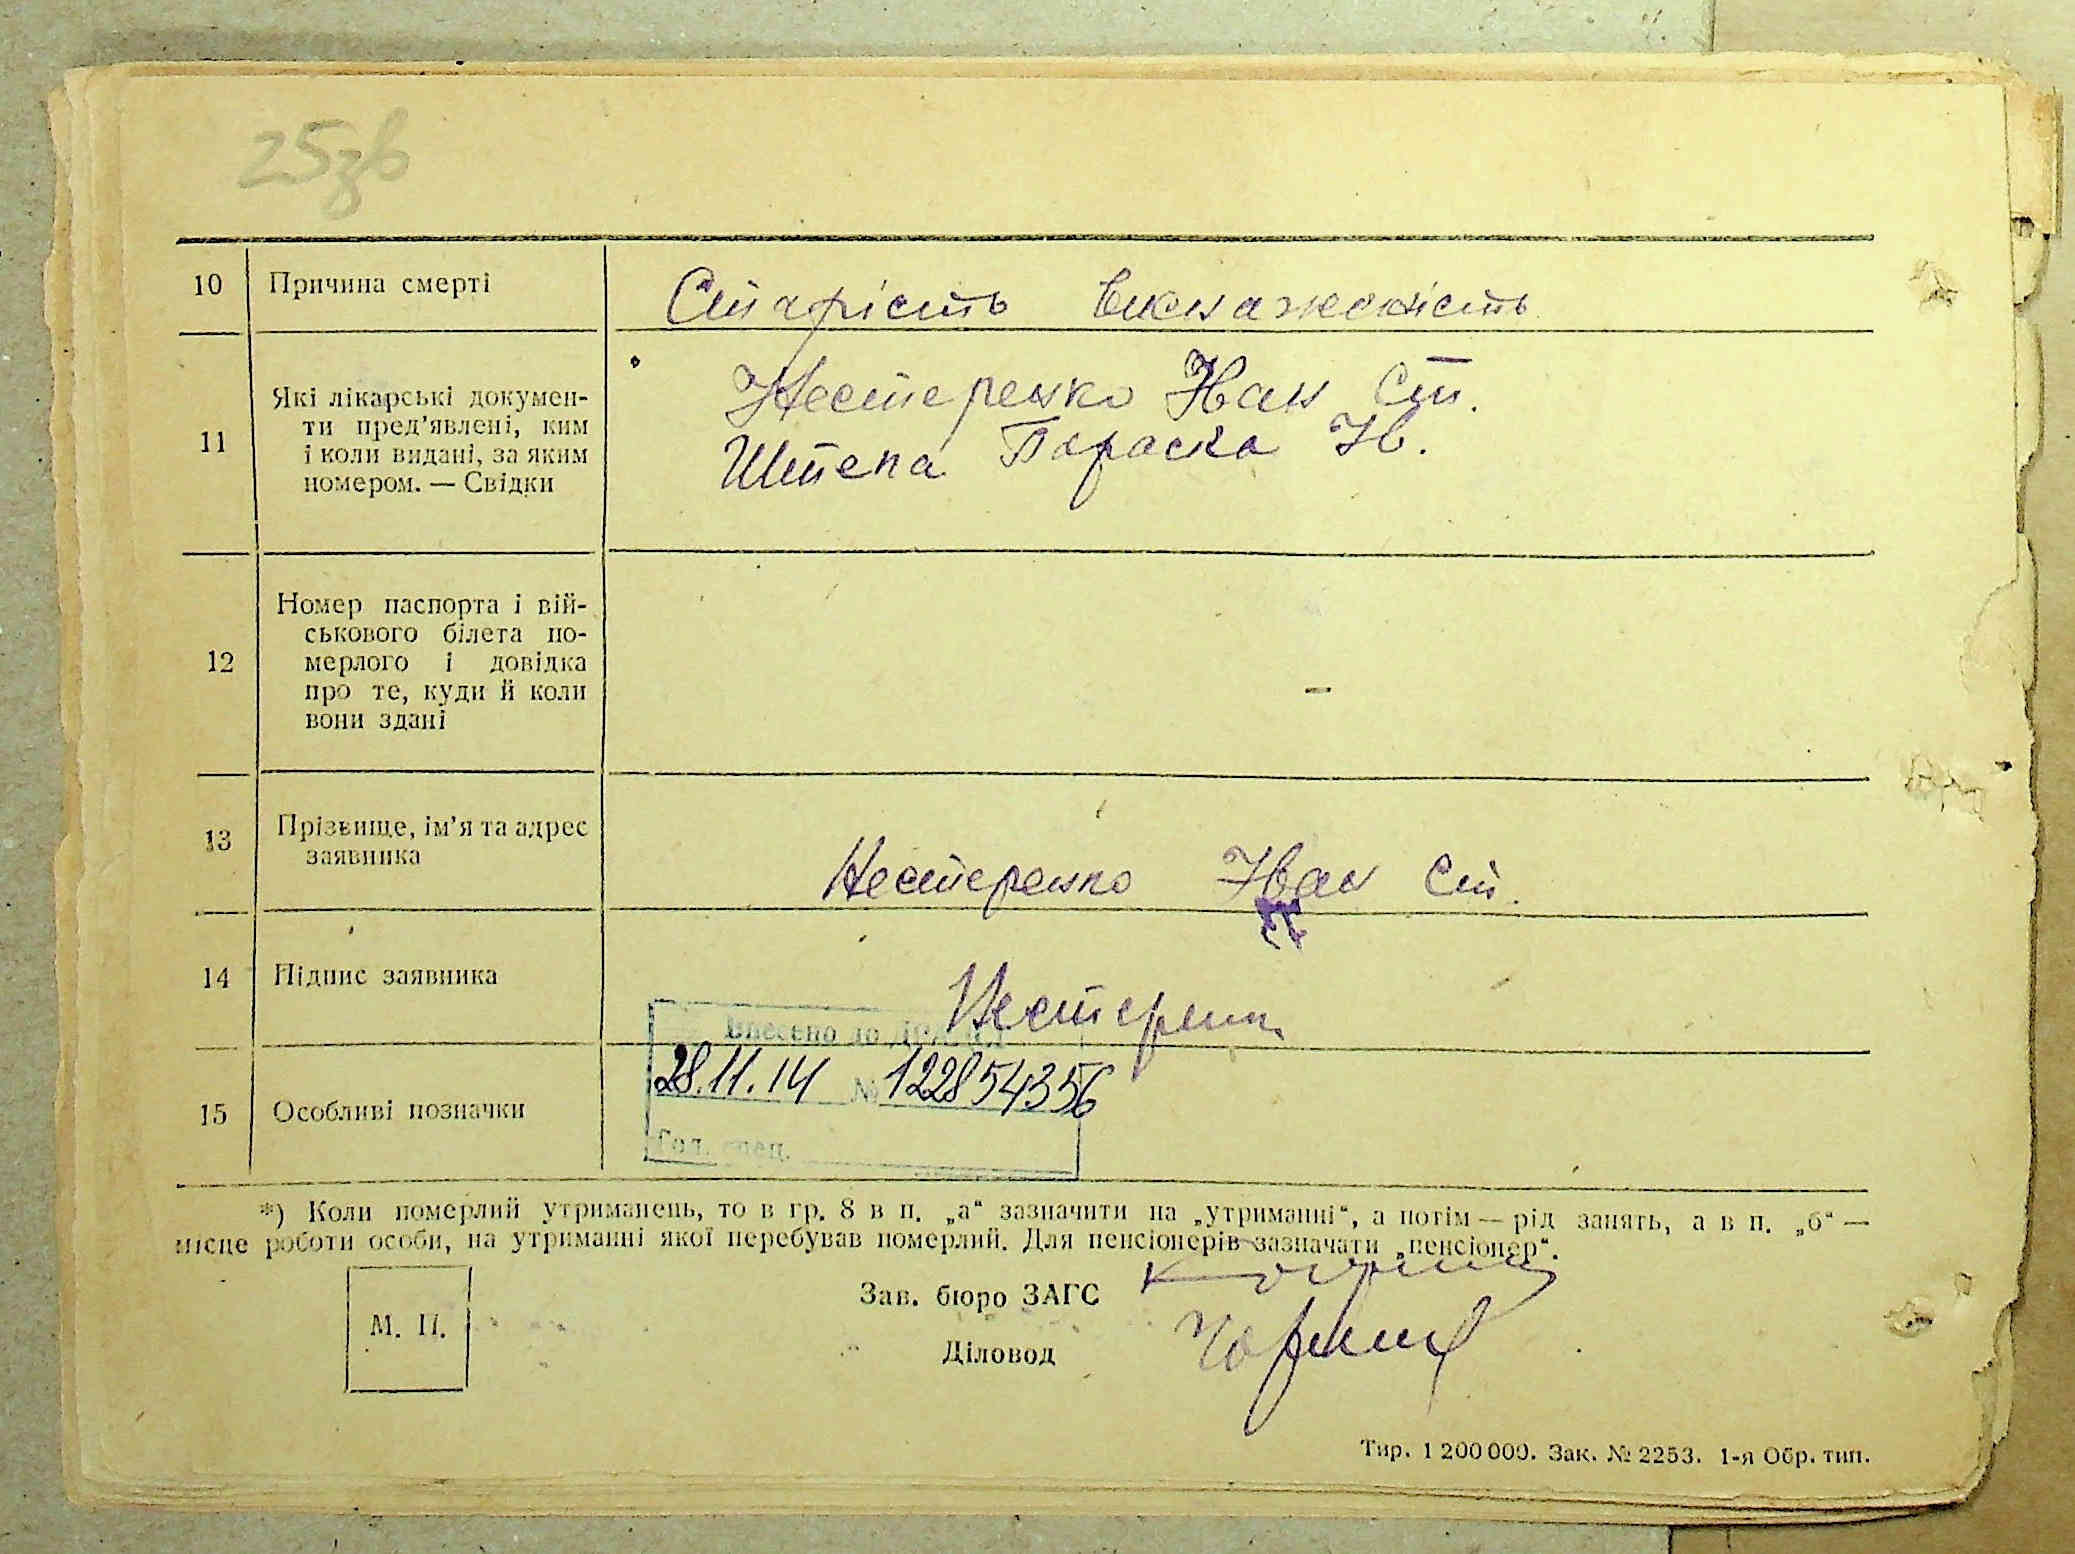 25зв
10 Причина смерті Старість виснаженість
11 Які лікарські докумен-
ти пред'явлені, ким
і коли видані, за яким
номером. — Свідки
Нестеренко Іван Ст.
Штепа Параска Ів.
12 Номер паспорта і вій-
ськового білета по-
мерлого і довідка
про те, куди й коли
вони здані
–
13 Прізвище, ім'я та адрес
заявника
Нестеренко Іван Ст.
14 Підпис заявника
Внесено до
28.11.14 № 122854356
15 Особливі позначки
Гол. спец.
*) Коли померлий утриманець, то в гр. 8 в п. „а“ зазначити на „утриманні“, а потім — рід занять, а в п. „б“ —
місце роботи особи, на утриманні якої перебував померлий. Для пенсіонерів зазначати „пенсіонер“.
Зав. бюро ЗАГС
М. П.
Діловод
Тир. 1 200 000. Зак. № 2253. 1-я Обр. тип.